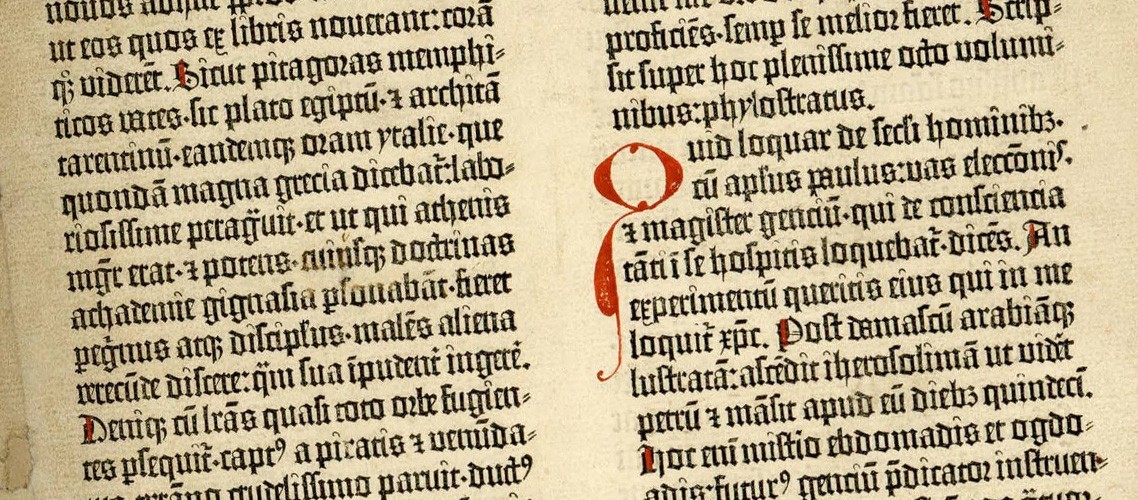 ut eos quos ex libris nouerant: corā
qꝫ viderēt. Sicut pitagoras memphi-
ticos vates· sic plato egiptū· ⁊ architā
tarentinū· eandemqꝫ oram ytalie· que
quondā magna grecia dicebat̄: labo-
riosissime peragᷓuit· et ut qui athenis
mgr̄ erat· ⁊ potens· cuiusqꝫ doctrinas
achademie gignasia ꝑsonabāt· fieret
peg̊nus atqꝫ discipl̓us· malēs aliena
verecūde discere: q̄ꝫ sua īpudent̄ ingerē.
Deniqꝫ cū l̄rās quasi toto orbe fugien-
tes ꝑsequit̄· captꝰ a piratis ⁊ venūda-
crudelissimo paruit· ductꝰ
proficiēs· semꝑ se melior fieret. Scrip-
sit super hoc plenissime octo volumi-
nibus: phylostratus.
Quid loquar de secl̓i hominibꝫ·
cū apl̓us paulus: vas elecc̄onis·
⁊ magister genciū· qui de consciencia
tāti ī se hospitis loquebat̄· dicēs. An
experimentū queritis eius qui in me
loquit̄ xp̄c. Post damascū arabiāqꝫ
lustratā: ascēdit iherosolimā ut videt̄
petrū ⁊ māsit apud eū diebꝫ quindecī.
Hoc em̄ mistio ebdomadis et ogdo-
adis· futurꝰ genciū p̄dicator instruen-